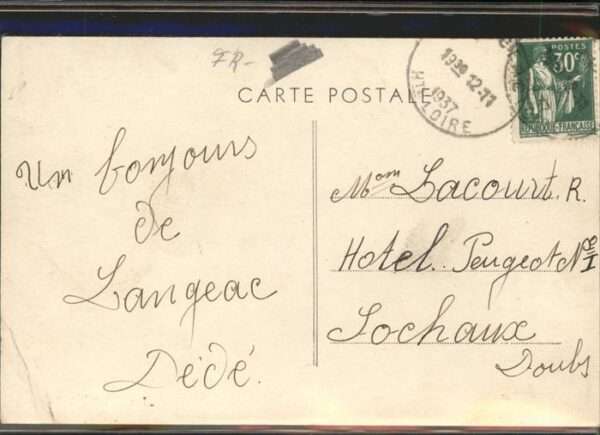 FR-
CARTE POSTALE
Un bonjours
de
Langeac
Dédé.
19 30 12-11
1937
HTE LOIRE
POSTES
30c
REPUBLIQUE-FRANÇAISE
Mom Lacourt. R.
Hotel. Peugeot No I
Sochaux
Doubs